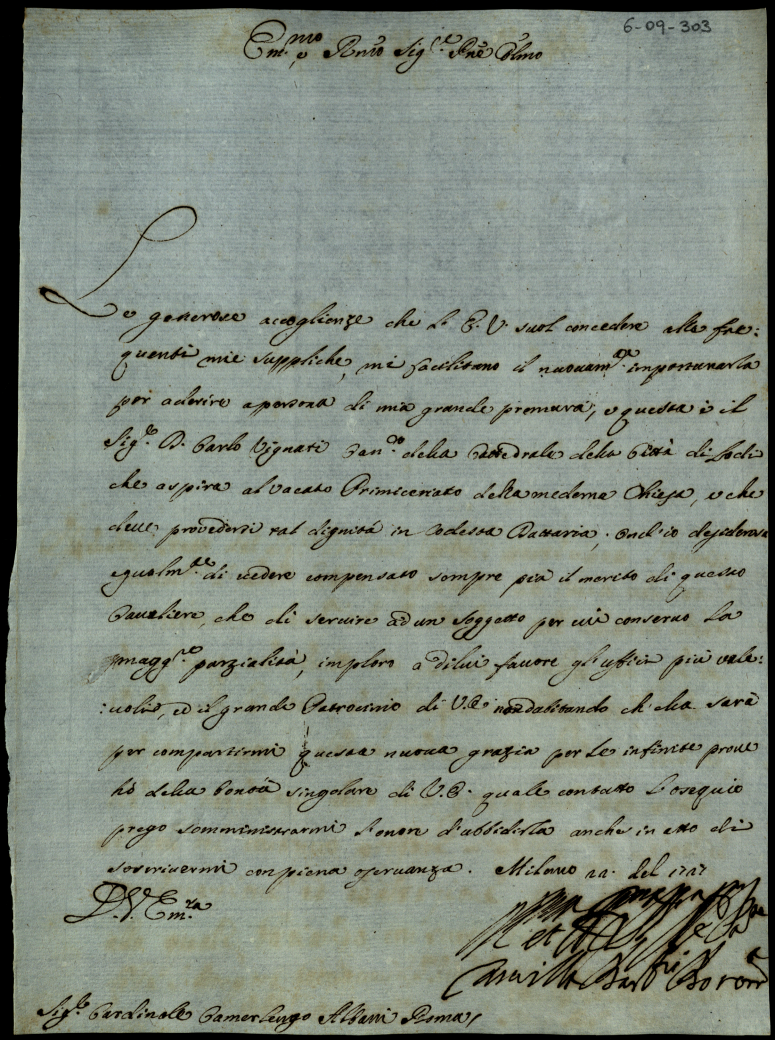 6-09-303
Em.mo e Rmo Sig.re Pne Colmo
Le generose accoglienze che l'E. V. suol concedere alle fre:
quenti mie suppliche, mi facilitano il nuovam.te importunarla
per aderire a persona di mia grande premura, e questa è il
Sig.e D. Carlo Vignati Can.co della Cattedrale della Città di Lodi
che aspira al vacato Primiceriato della medema Chiesa, e che
deve provedersi tal dignità in codesta Dattaria; ond'io desideroso
egualm.te di vedere compensato sempre più il merito di questo
Cavaliere, che di servire ad un soggetto per cui conservo la
magg.re parzialità, imploro a di lui favore gl'uffici più vale:
:voli, ed il grande Patrocinio di V. E. non dubitando ch'ella sarà
per compartirmi questa nuova grazia per le infinite prove
hò della bontà singolare di V. E. quale con tutto l'osequio
prego somministrarmi l'onore d'ubbidirla anche in atto di
soscrivermi con piena osservanza. Milano del 1727
D. V. Em.za
et
Camilla Barb.ni Borom
Sig.e Cardinale Camerlengo Albani Roma